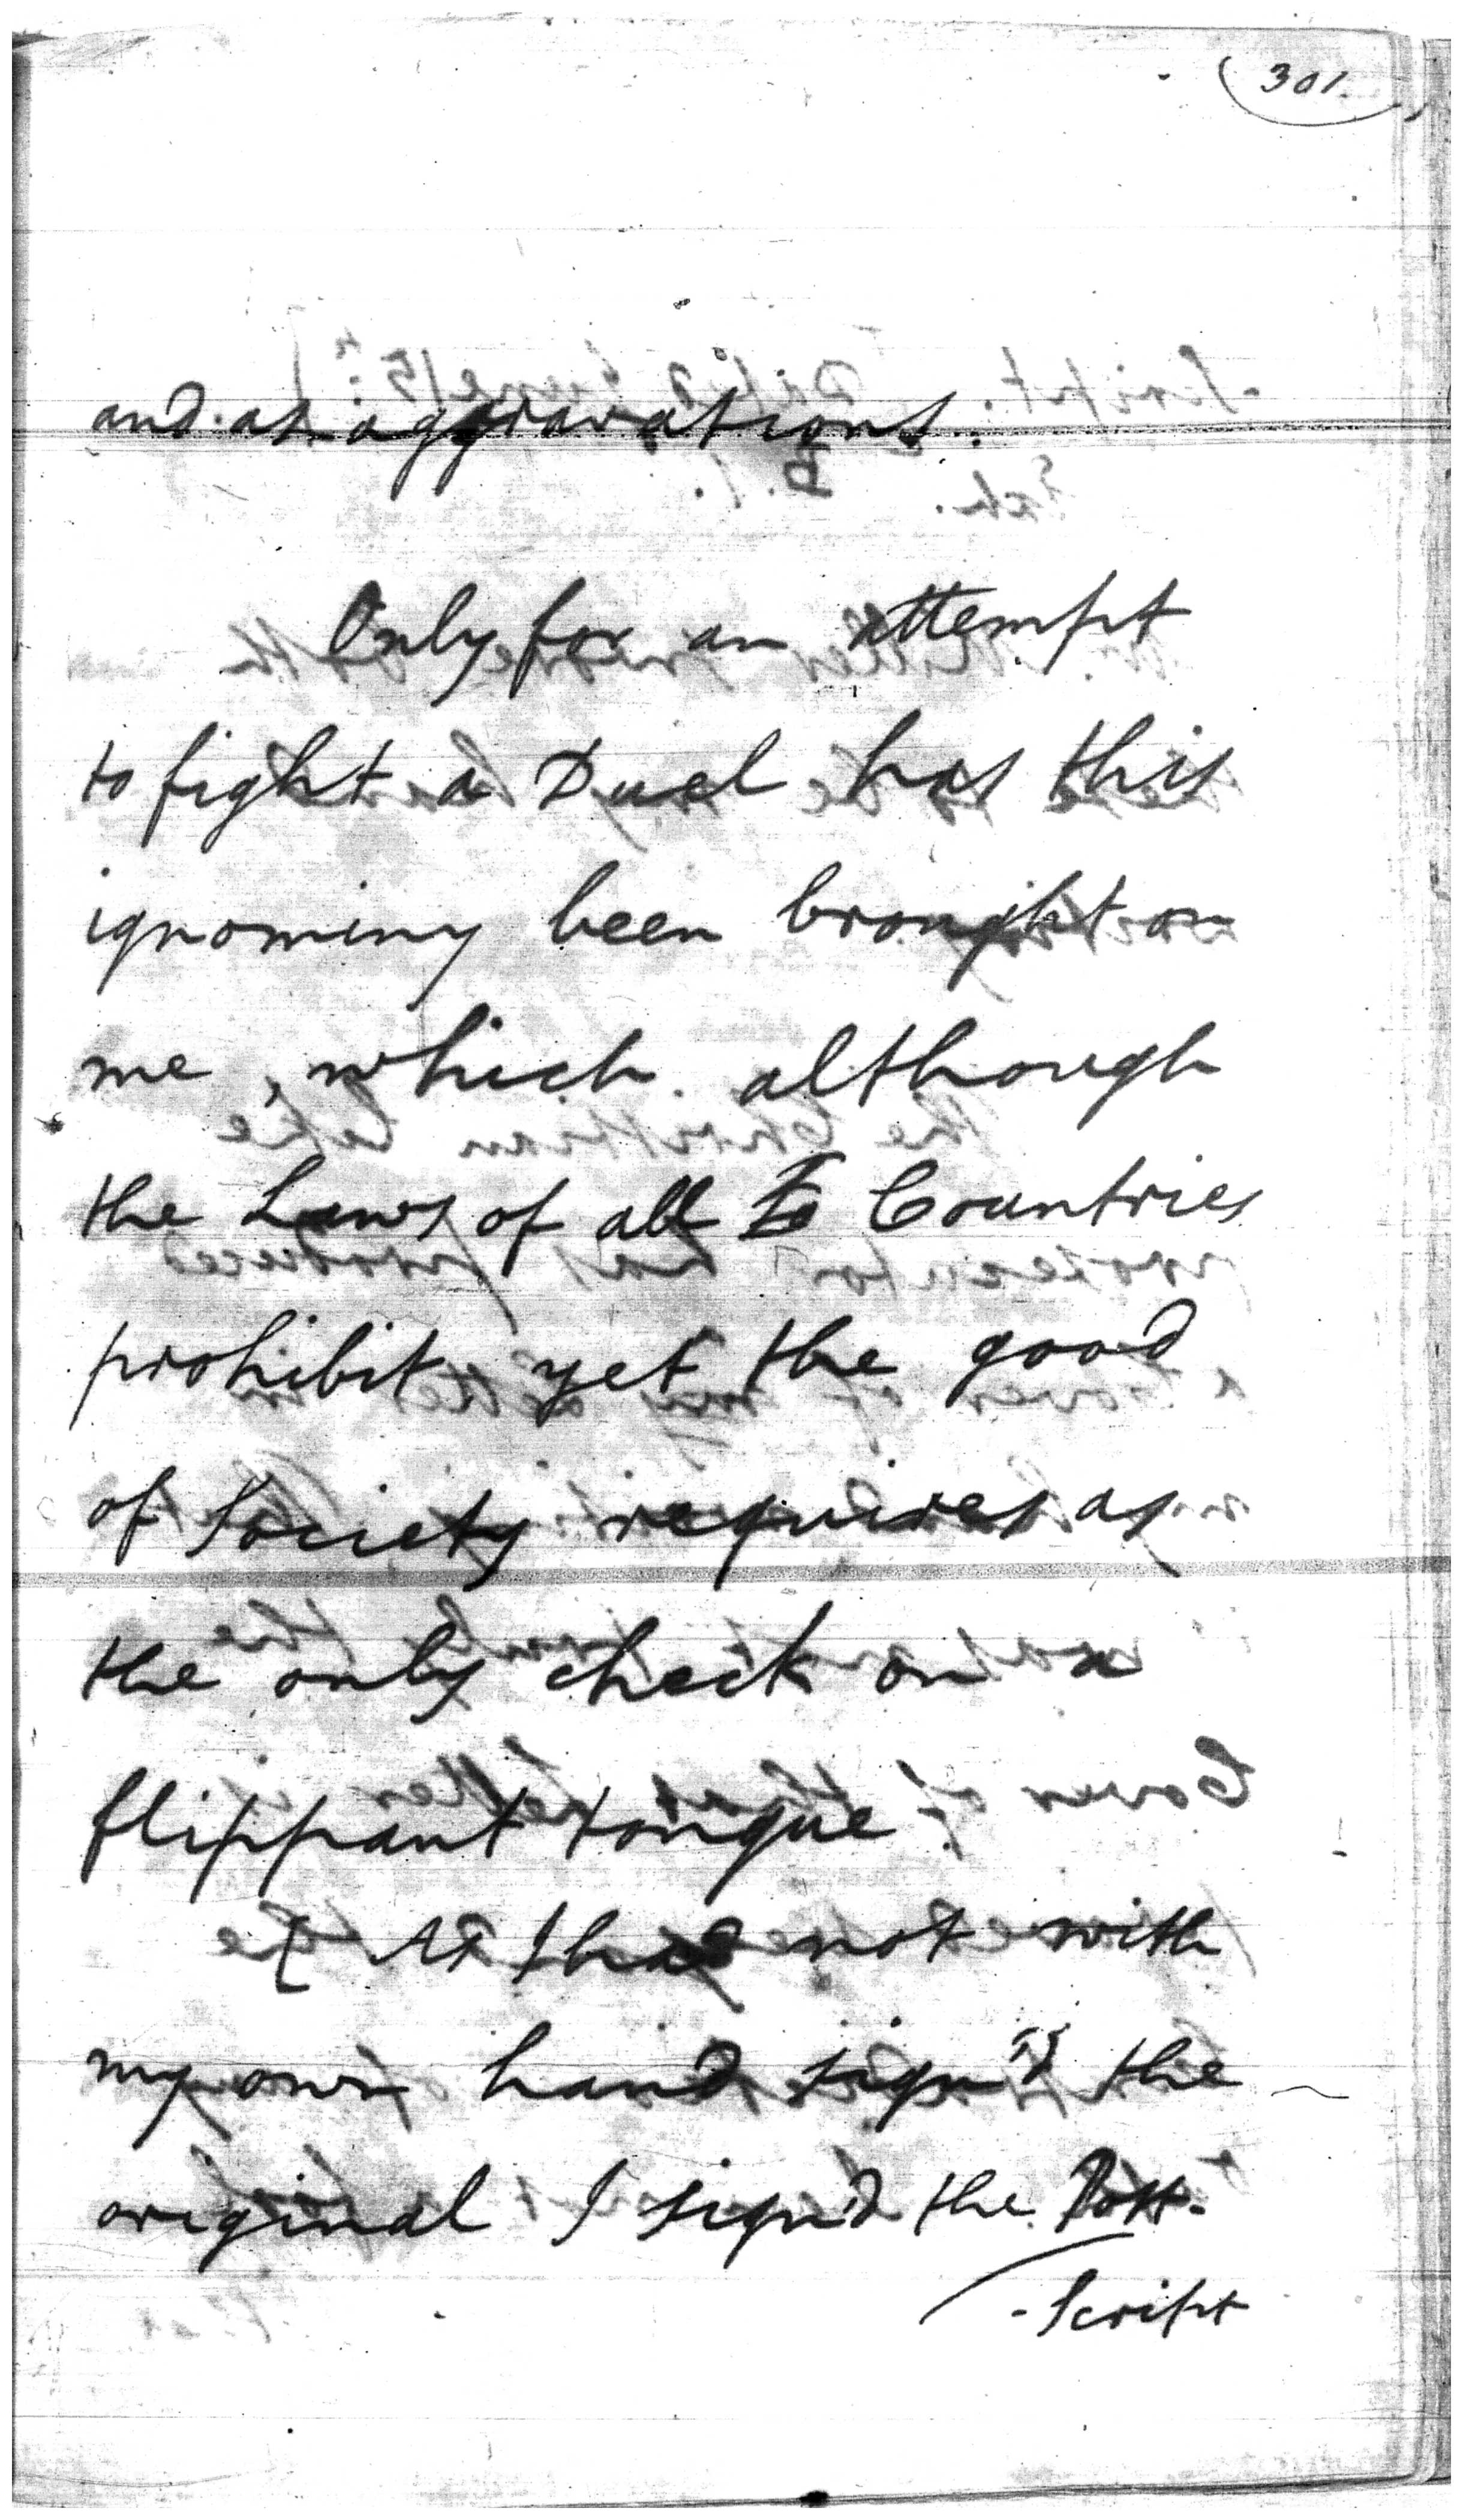 301.
and as aggravations.
Only for an attempt
to fight a Duel has this
ignominy been brought on
me, which although
the Laws of all Countries
prohibit yet the good
of Society requires as
the only check on a
flippant tongue.
[ As I had not with
my own hand sign'd the
original I sign'd the Post-
-Script